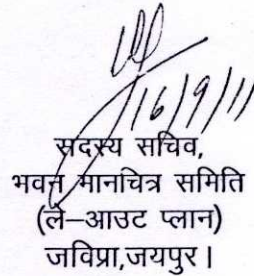 16/9/11
सदस्य सचिव,
भवन मानचित्र समिति
(ले–आउट प्लान)
जविप्रा,जयपुर।